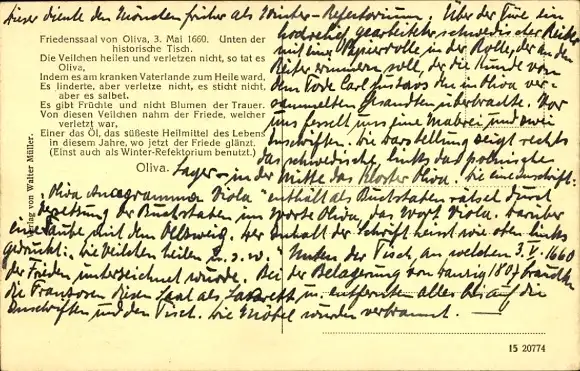 Dieser diente den Mönchen früher als Winter-Refektorium. Über der Türe ein
hochrelief, gearbeiteter schwedischer Reiter
mit einer Papierrolle in der Rolle, der an den
Reiter erinnern soll, der die Kunde von
dem Tode Carl Gustavs den in Oliva ver-
sammelten Gesandten überbrachte. Vor
uns fesselt uns eine Malerei und zwei
Inschriften. Die Darstellung zeigt rechts
das schwedische, links das polnische
Lager - in der Mitte das Kloster Oliva. Die eine Inschrift:
Friedenssaal von Oliva, 3. Mai 1660. Unten der
historische Tisch.
Die Veilchen heilen und verletzen nicht, so tat es
Oliva,
Indem es am kranken Vaterlande zum Heile ward,
Es linderte, aber verletze nicht, es sticht nicht,
aber es salbet.
Es gibt Früchte und nicht Blumen der Trauer.
Von diesen Veilchen nahm der Friede, welcher
verletzt war,
Einer das Öl, das süßeste Heilmittel des Lebens
in diesem Jahre, wo jetzt der Friede glänzt.
(Einst auch als Winter-Refektorium benutzt.)
Oliva.
Verlag von Walter Müller.
"Oliva Anagramma Viola" enthält als Buchstabenrätsel durch
Versetzung der Buchstaben im Worte Oliva, das Wort Viola. Darüber
eine Taube mit dem Ölzweig. Der Inhalt der Schrift heisst wie oben links
gedruckt: Die Veilchen heilen u. s. w. Unten der Tisch, an welchem 3. V. 1660
der Frieden unterzeichnet wurde. Bei der Belagerung von Danzig 1807 brauchten
die Franzosen diesen Saal als Lazarett u. entfernten alles bis auf die
Inschriften und den Tisch. Die Möbel wurden verbrannt. —
15 20774